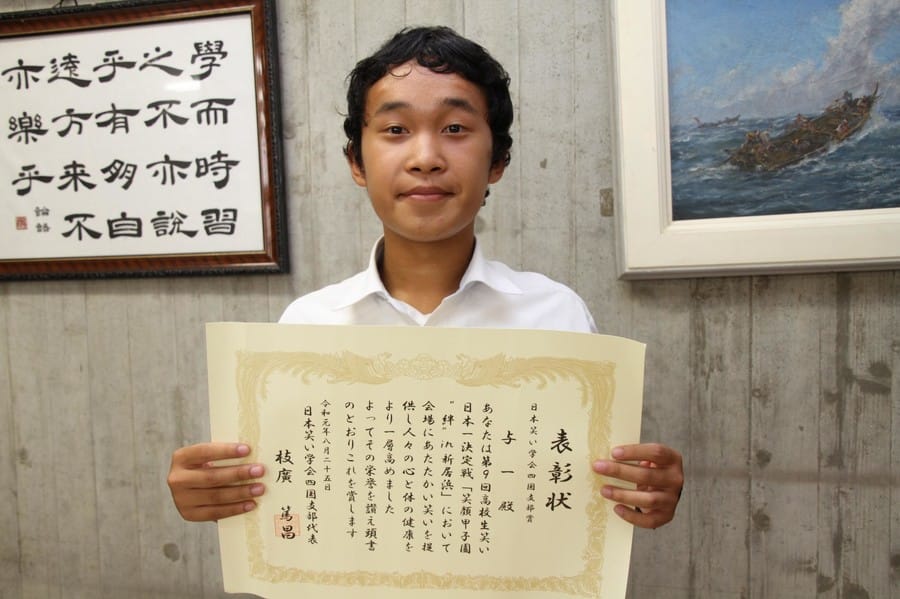 學而時習
之不亦說
乎有朋自
遠方來不
亦樂乎
論語
表彰状
日本笑い学会四国支部賞
与一殿
あなたは第9回高校生笑い
日本一決定戦「笑顔甲子園
"絆"in新居浜」において
会場にあたたかい笑いを提
供し人々の心と体の健康を
より一層高めました
よってその栄誉を讃え頭書
のとおりこれを賞します
令和元年八月二十五日
日本笑い学会四国支部代表
枝廣 篤昌